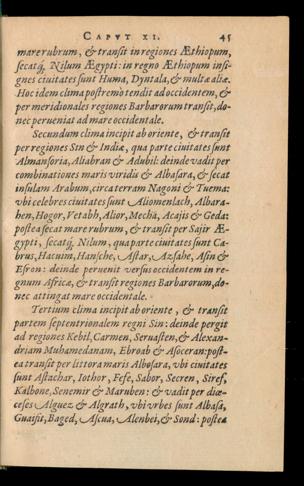 CAPVT XI. 45
mare rubrum, & transit in regiones Æthiopum,
secatq́; Nilum Ægypti: in regno Æthiopum insi-
gnes ciuitates sunt Huma, Dyntala, & multæ aliæ.
Hoc idem clima postremò tendit ad occidentem, &
per meridionales regiones Barbarorum transit, do-
nec perueniat ad mare occidentale.
Secundum clima incipit ab oriente, & transit
per regiones Sin & Indiæ, qua parte ciuitates sunt
Almansoria, Aliabran & Adubil: deinde vadit per
combinationes maris viridis & Albasara, & secat
insulam Arabum, circa terram Nagoni & Tuema:
vbi celebres ciuitates sunt Aliomenlach, Albara-
hen, Hogor, Vetabh, Alior, Mecha, Acajis & Geda:
postea secat mare rubrum, & transit per Sajir Æ-
gypti, secatq́; Nilum, qua parte ciuitates sunt Ca-
brus, Hacuim, Hansche, Astar, Azsahe, Asin &
Esron: deinde peruenit versus occidentem in re-
gnum Africa, & transit regiones Barbarorum, do-
nec attingat mare occidentale.
Tertium clima incipit ab oriente, & transit
partem septentrionalem regni Sin: deinde pergit
ad regiones Kebil, Carmen, Seruasten, & Alexan-
driam Muhamedanam, Ebroab & Asoceran: post-
ea transit per littora maris Albosara, vbi ciuitates
sunt Astachar, Iothor, Fese, Sabor, Secren, Siref,
Kalbone, Senemir & Maruben: & vadit per diœ-
ceses Alguez & Algrath, vbi vrbes sunt Albasa,
Guasit, Baged, Ascua, Alenbei, & Sond: postea